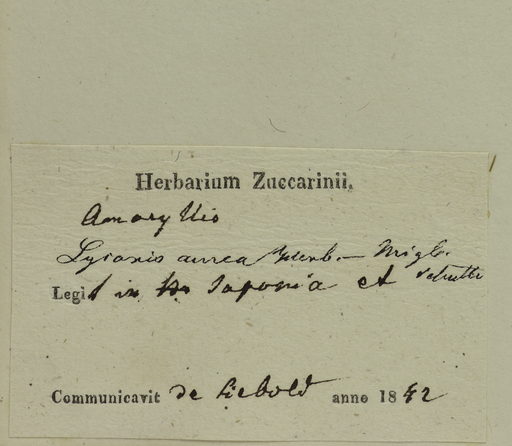 Herbarium Zuccarinii.
Amaryllis
Lycoris aurea Herb. —
Legit in Japonia et
Communicavit de Siebold anno 1842